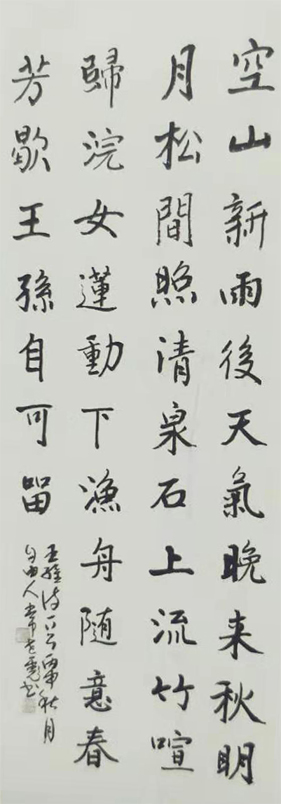 空山新雨後天氣晚来秋明
月松間照清泉石上流竹喧
歸浣女蓮動下漁舟随意春
芳歇王孫自可留
王維诗一首 秋月
自由人 书